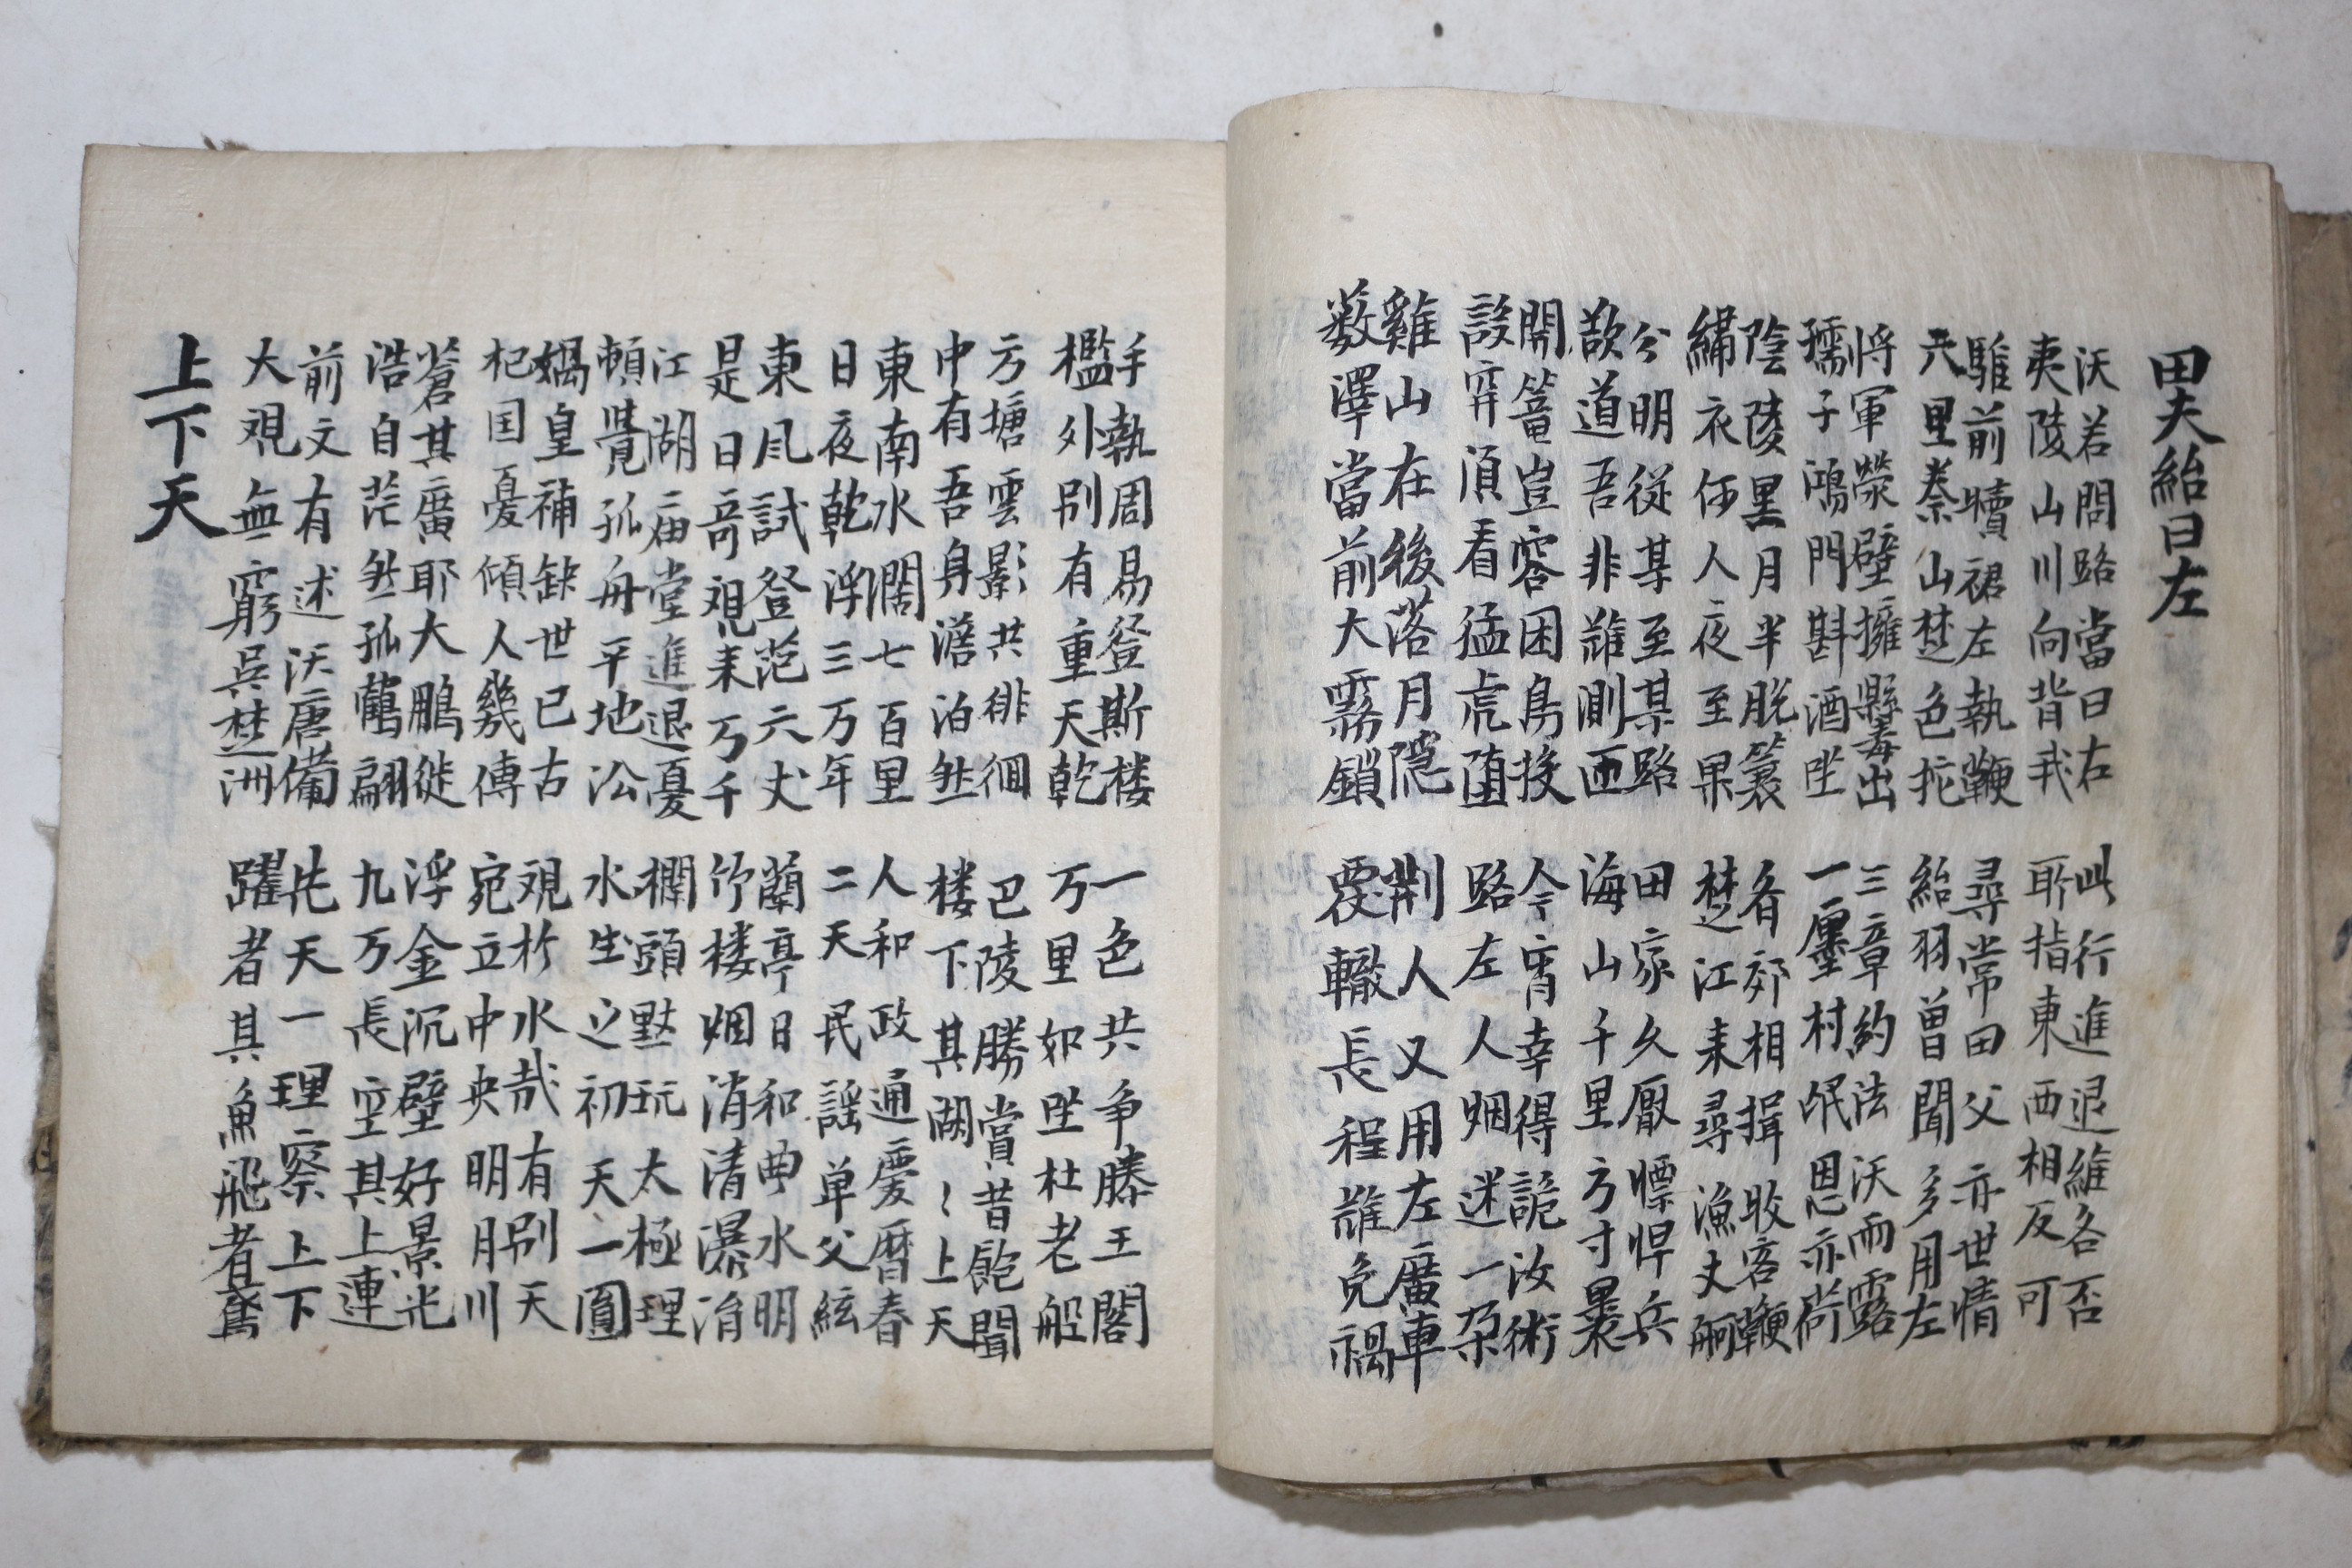 田夫紿曰左
沃若問路當曰右
夷陵山川向背我
此行進退維各否
聊指東西相反可
騅前犢裙左執鞭
里秦山楚色拕
尋常田父亦世情
紿羽曾聞多用左
将軍滎壁擁纛出
孺子鴻門斟酒坐
三章約法沃雨露
一廛村氓恩亦荷
陰陵黒月半脫蓑
繡衣何人夜至果
各郊相揖收客鞭
楚江来尋漁丈舸
公明従某至某路
欿道吾非難測叵
田家久厭慓悍兵
海山千里方寸裹
開篭豈容困鳥投
設穽須看猛虎墮
今宵幸得詭汝術
路左人烟迷一朶
雞山在後落月隠
薮澤當前大霧鎖
荆人又用左廣車
覆轍長程難免禍
手執周易登斯楼
檻外別有重天乾
一色共争滕王閣
万里如坐杜老船
方塘雲影共徘徊
中有吾身澹泊然
巴陵勝賞昔飽聞
楼下其湖〻上天
東南水濶七百里
日夜乾浮三万年
人和政通慶曆春
二天民謡单父絃
東風試登范六丈
是日奇观来万千
蘭亭日和曲水明
竹楼烟消清瀑涓
江湖庙堂進退憂
頓覺孤舟平地㳂
欄頭默玩太極理
水生之初天一圓
媧皇補缺世已古
杞国憂傾人幾傳
观於水哉有別天
宛立中央明月川
蒼其廣耶大鵬徙
浩自茫然孤鶴翩
浮金沉壁好景光
九万長空其上連
前文有述沃唐備
大观無窮呉楚洲
先天一理察上下
躍者其魚飛者鳶
上下天